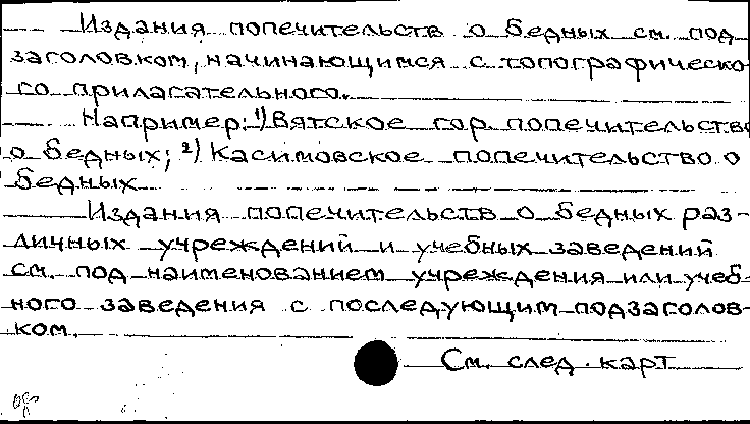 Издания попечительств о бедных см. под
заголовком, начинающимся с топографическо-
го прилагательного.
Например: 1) Вятское гор. попечительство
о бедных; 2) Касимовское попечительство о
бедных
Издания попечительств о бедных раз-
личных учреждений и учебных заведений
см. под наименованием учреждения или учеб-
ного заведения с последующим подзаголов-
ком.
См. след. карт